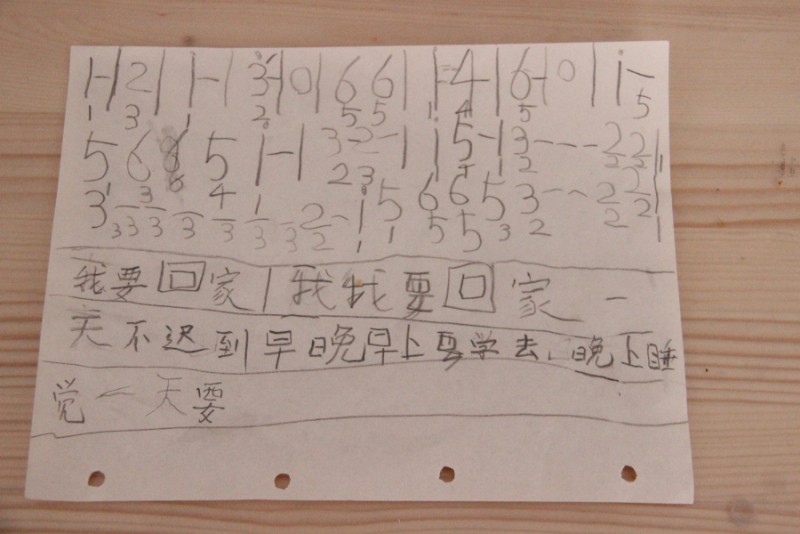 1-|2||-|3-|0|66||-4-|6-|0||1-
1 3 1 2 5 5 1 4 5 5
5 6 5 1-| 3 2-1|5-1 3---2 2
2 3 2 2 2
3---4-1--2-1 5 6 6 5 3--2 2
3 3 3 3 3 3 2 1 1 5 5 3 2 2 2 1
我要回家|我我要回家一
天不迟到早晚早上要学去，晚上睡
觉一天要